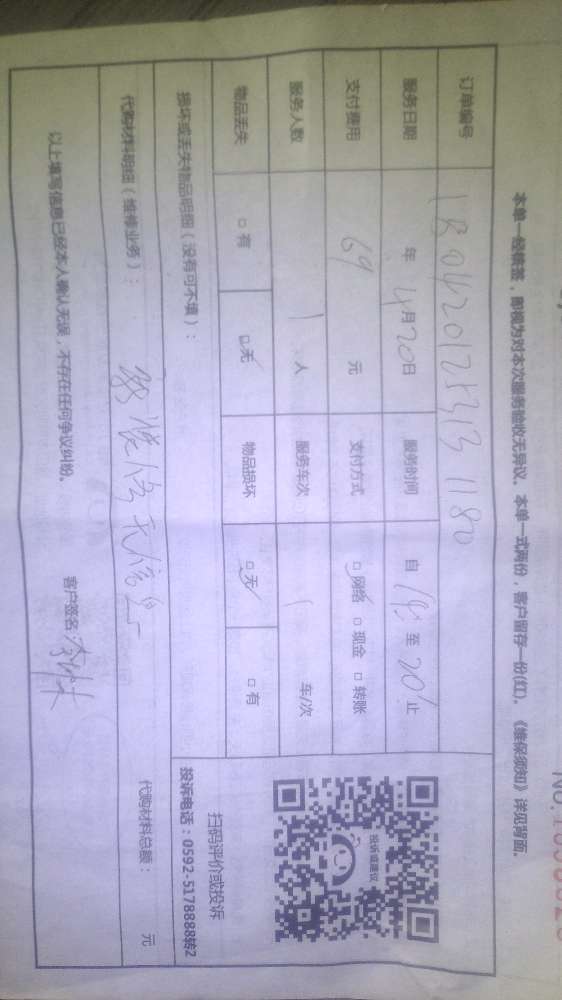 本单一经签签，即视为对本次服务验收无异议。本单一式两份，客户留存一份(红)。《维保须知》详见背面。
订单编号
服务日期 年 4月20日 服务时间 自 至 20 止
支付费用 69 元 支付方式 □网络 □现金 □转账
服务人数 1 人 服务车次 1 车/次
物品丢失 □有 □无 物品损坏 □无 □有
损坏或丢失物品明细（没有可不填）：
代购材料明细（维修业务）：
代购材料总额： 元
以上填写信息已经本人确认无误，不存在任何争议纠纷。
客户签名
投诉或建议
扫码评价或投诉
投诉电话：0592-5178888转2